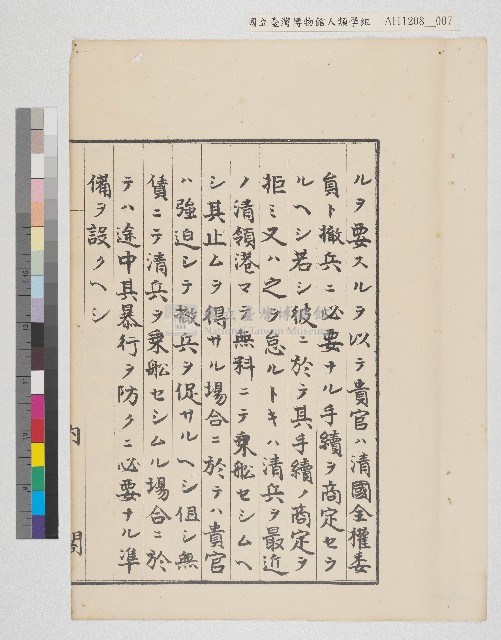 國立臺灣博物館人類學組 AH1208__007
ルヲ要スルヲ以テ貴官ハ清國全權委
員ト撤兵ニ必要ナル手續ヲ商定セラ
ルヘシ若シ彼ニ於テ其手續ノ商定ヲ
拒ミ又ハ之ヲ怠ルトキハ清兵ヲ最近
ノ清領港マテ無料ニテ乗船セシムヘ
シ其止ムヲ得サル場合ニ於テハ貴官
ハ強迫シテ撤兵ヲ促サルヘシ但シ無
賃ニテ清兵ヲ乗船セシムル場合ニ於
テハ途中其暴行ヲ防クニ必要ナル準
備ヲ設クヘシ
内閣
國立臺灣博物館
National Taiwan Museum